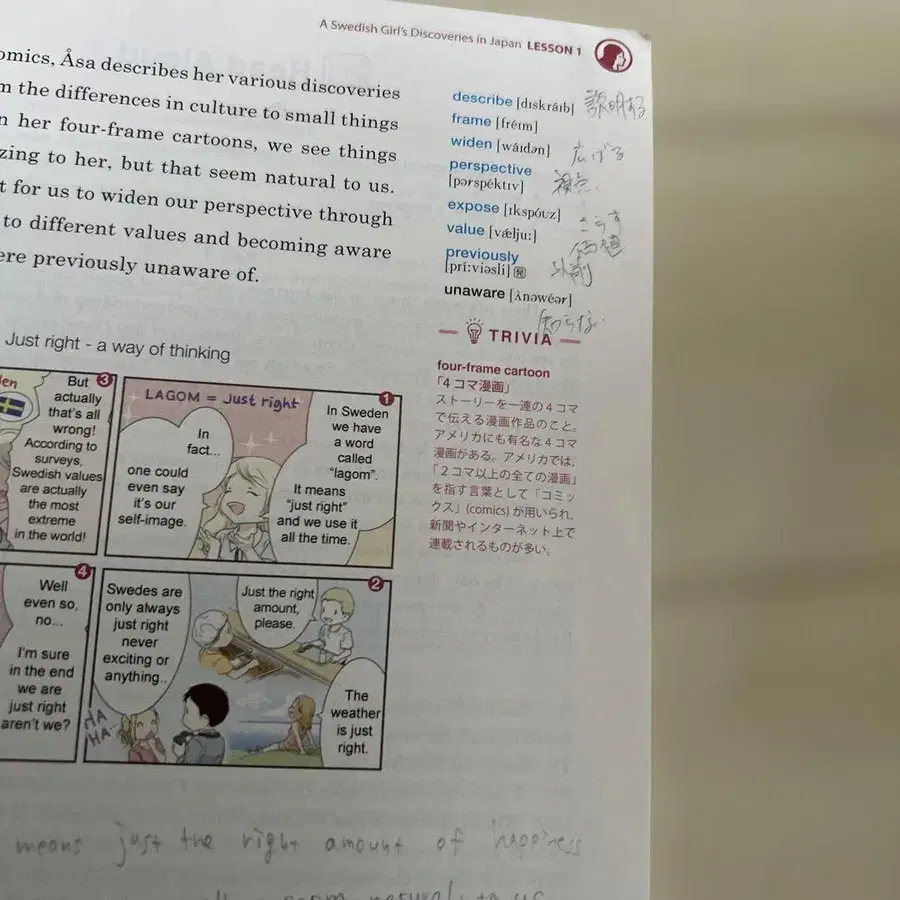 A Swedish Girl's Discoveries in Japan LESSON 1
omics, Åsa describes her various discoveries
m the differences in culture to small things
n her four-frame cartoons, we see things
zing to her, but that seem natural to us.
t for us to widen our perspective through
to different values and becoming aware
ere previously unaware of.
describe [dɪskráɪb] 説明する
frame [fréɪm]
widen [wáɪdən] 広げる
perspective
[pərspéktɪv] 視点
expose [ɪkspóʊz] さらす
value [vǽljuː] 価値
previously
[príːviəsli] 発 以前
unaware [ʌ̀nəwéər]
知らない
TRIVIA
four-frame cartoon
「4コマ漫画」
ストーリーを一連の4コマ
で伝える漫画作品のこと。
アメリカにも有名な4コマ
漫画がある。アメリカでは,
「2コマ以上の全ての漫画」
を指す言葉として「コミッ
クス」(comics) が用いられ,
新聞やインターネット上で
連載されるものが多い。
Just right - a way of thinking
1
LAGOM = Just right
In Sweden
we have
a word
called
"lagom".
It means
"just right"
and we use it
all the time.
In
fact...
one could
even say
it's our
self-image.
2
Just the right
amount,
please.
The
weather
is just
right.
Swedes are
only always
just right
never
exciting or
anything..
HA
HA
3
den
But
actually
that's all
wrong!
According to
surveys,
Swedish values
are actually
the most
extreme
in the world!
4
Well
even so,
no...
I'm sure
in the end
we are
just right
aren't we?
means just the right amount of happiness
seem natural to us